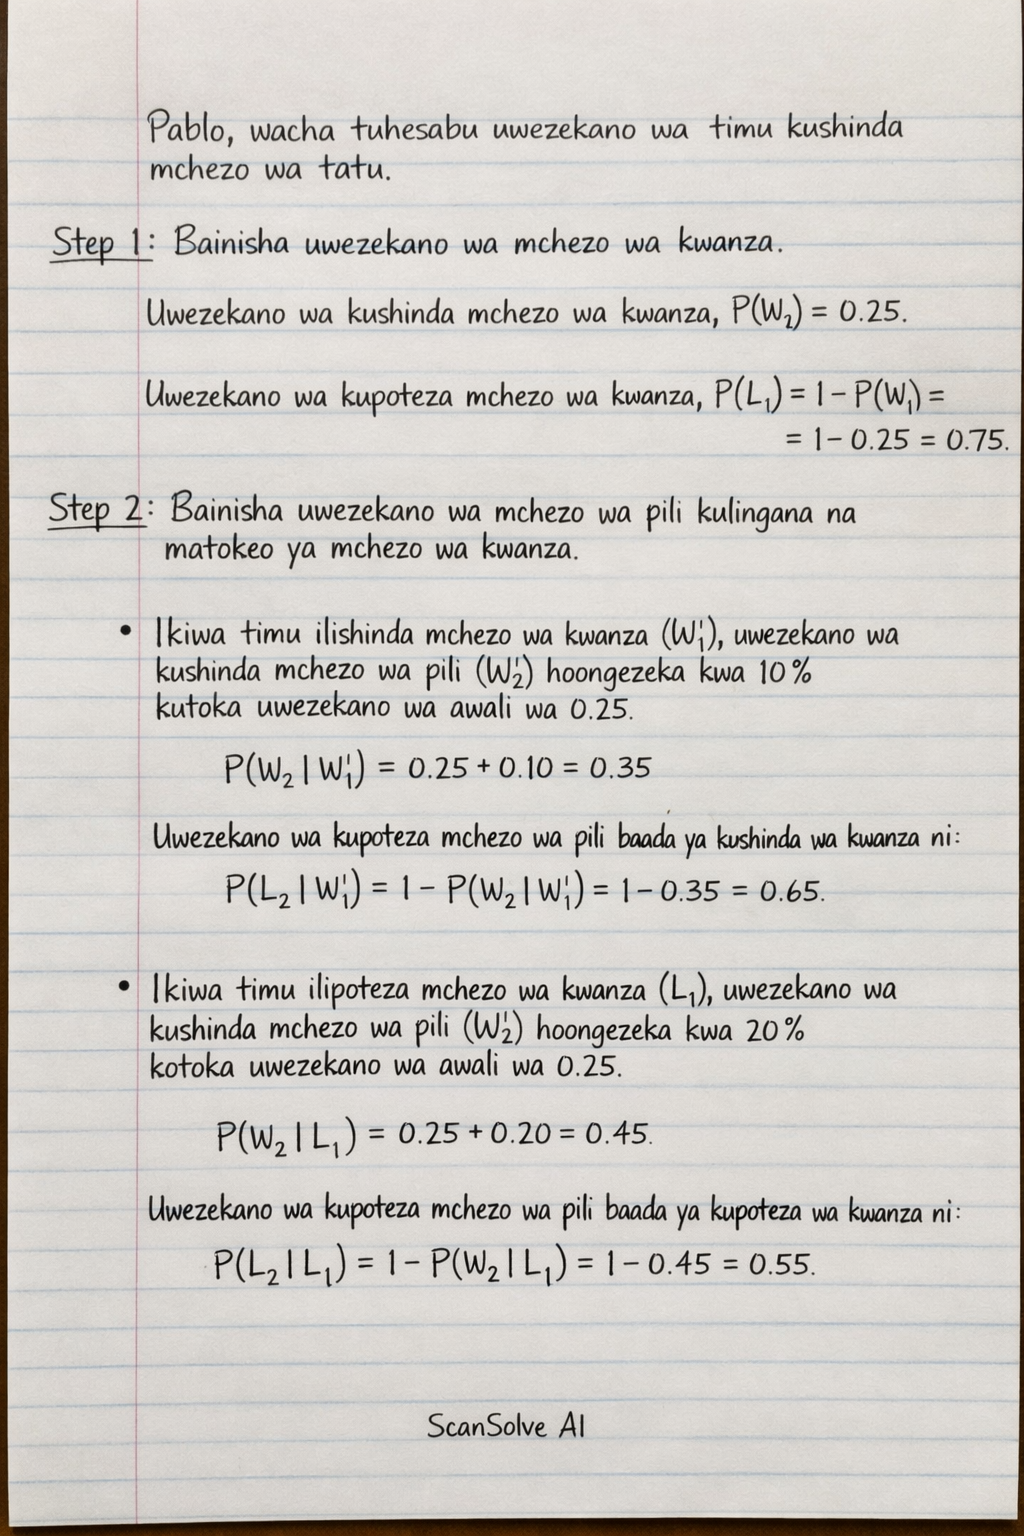 Pablo, wacha tuhesabu uwezekano wa timu kushinda
mchezo wa tatu.
Step 1: Bainisha uwezekano wa mchezo wa kwanza.
Uwezekano wa kushinda mchezo wa kwanza, P(W₂) = 0.25.
Uwezekano wa kupoteza mchezo wa kwanza, P(L₁) = 1 − P(W₁) =
= 1 − 0.25 = 0.75.
Step 2: Bainisha uwezekano wa mchezo wa pili kulingana na
matokeo ya mchezo wa kwanza.
• Ikiwa timu ilishinda mchezo wa kwanza (W₁'), uwezekano wa
kushinda mchezo wa pili (W₂') hoongezeka kwa 10%
kutoka uwezekano wa awali wa 0.25.
P(W₂ | W₁') = 0.25 + 0.10 = 0.35
Uwezekano wa kupoteza mchezo wa pili baada ya kushinda wa kwanza ni:
P(L₂ | W₁') = 1 − P(W₂ | W₁') = 1 − 0.35 = 0.65.
• Ikiwa timu ilipoteza mchezo wa kwanza (L₁), uwezekano wa
kushinda mchezo wa pili (W₂') hoongezeka kwa 20%
kotoka uwezekano wa awali wa 0.25.
P(W₂ | L₁) = 0.25 + 0.20 = 0.45.
Uwezekano wa kupoteza mchezo wa pili baada ya kupoteza wa kwanza ni:
P(L₂ | L₁) = 1 − P(W₂ | L₁) = 1 − 0.45 = 0.55.
ScanSolve AI